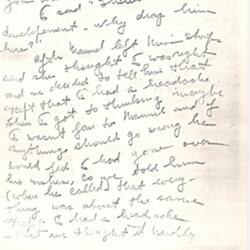 I said - "
development - why drag him
here?"
After Manuel left
said she thought I
and we decided to tell him that
except that I had a headache
then I got to thinking maybe
I wasn't fair to Manuel and if
anything should go wrong he
would feel I had gone over
his wishes. So we told him
(when he called) that every-
thing was about the same
I had a headache
- that we thought it hardly